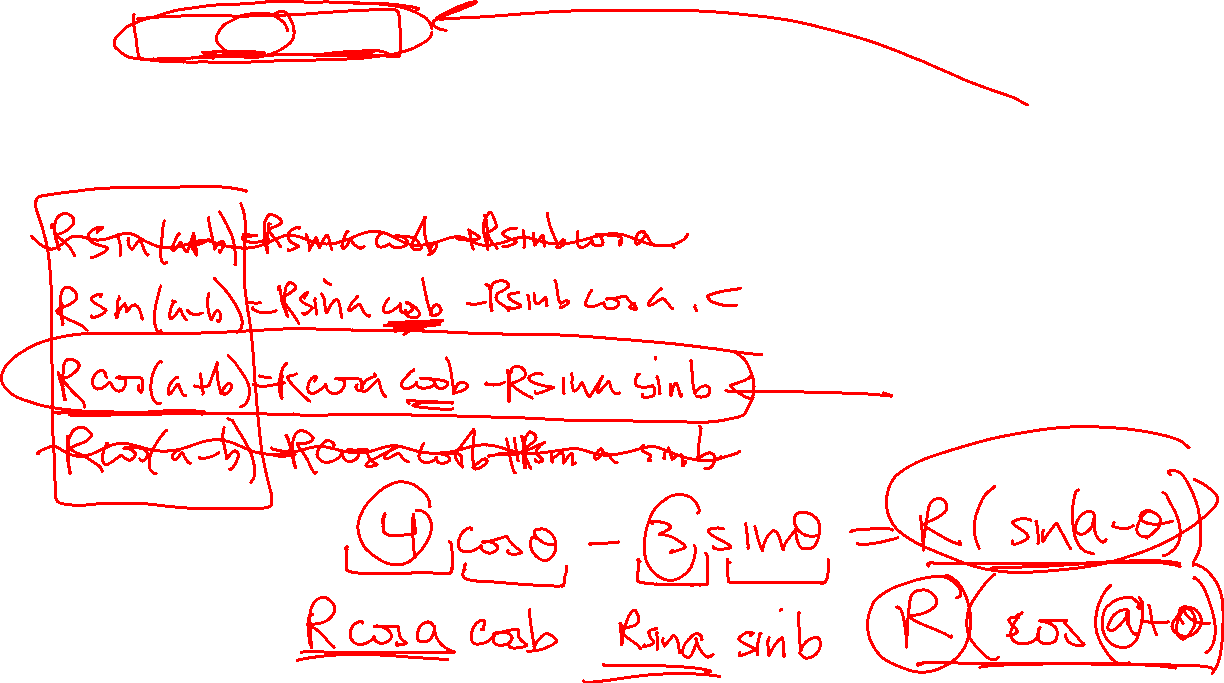 Rsin(a+b)=Rsina cosb +Rsinbcosa
Rsin(a-b)=Rsina cosb -Rsinb cosa.
Rcos(a+b)=Rcosa cosb -Rsina sinb
Rcos(a-b)=Rcosacosb+Rsina sinb
4 cosθ - 3 sinθ = R(sin(a-θ))
Rcosa cosb Rsina sinb R(cos(a+θ))